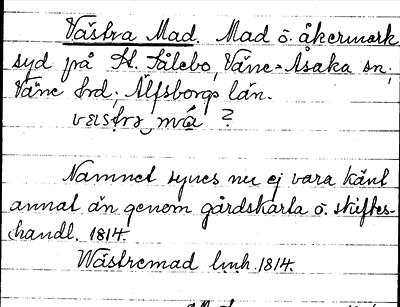 Västra Mad. Mad o. åkermark
syd på St. Sålebo, Väne-Åsaka sn,
Väne hrd, Älfsborgs län.
vɛistrə má ?
Namnet synes nu ej vara känt
annat än genom gårdskarta o. skiftes-
handl. 1814.
Wästremad lmh. 1814.